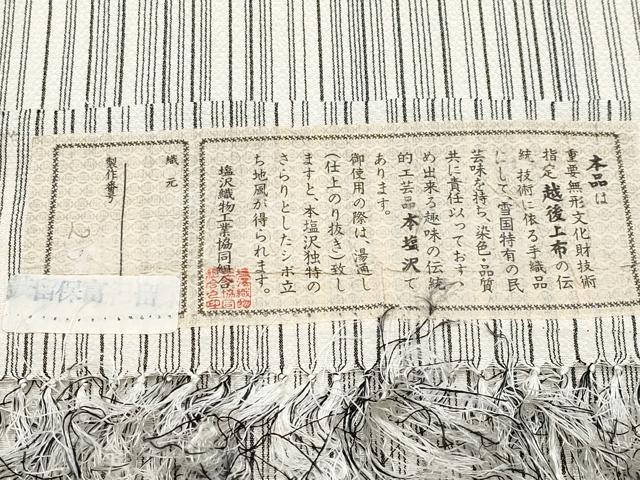 本品は
重要無形文化財技術
指定越後上布の伝
統技術に依る手織品
にして、雪国特有の民
芸味を持ち、染色・品質
共に責任以っておすゝ
め出来る趣味の伝統
的工芸品本塩沢で
あります。
御使用の際は、湯通し
(仕上のり抜き)致し
ますと、本塩沢独特の
さらりとしたシボ立
ち地風が得られます。
塩沢織物工業協同組合
塩沢織物
工業協同
組合之印
織元
製作番号